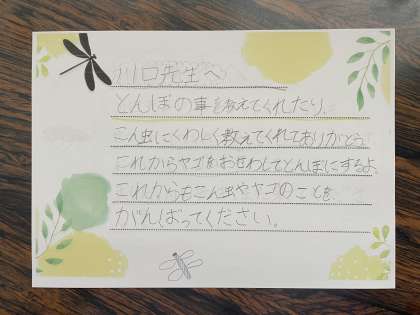 川口先生へ
とんぼの事を教えてくれたり、
こん虫にくわしく教えてくれてありがとう。
これからヤゴをおせわしてとんぼにするよ。
これからもこん虫やヤゴのことを
がんばってください。